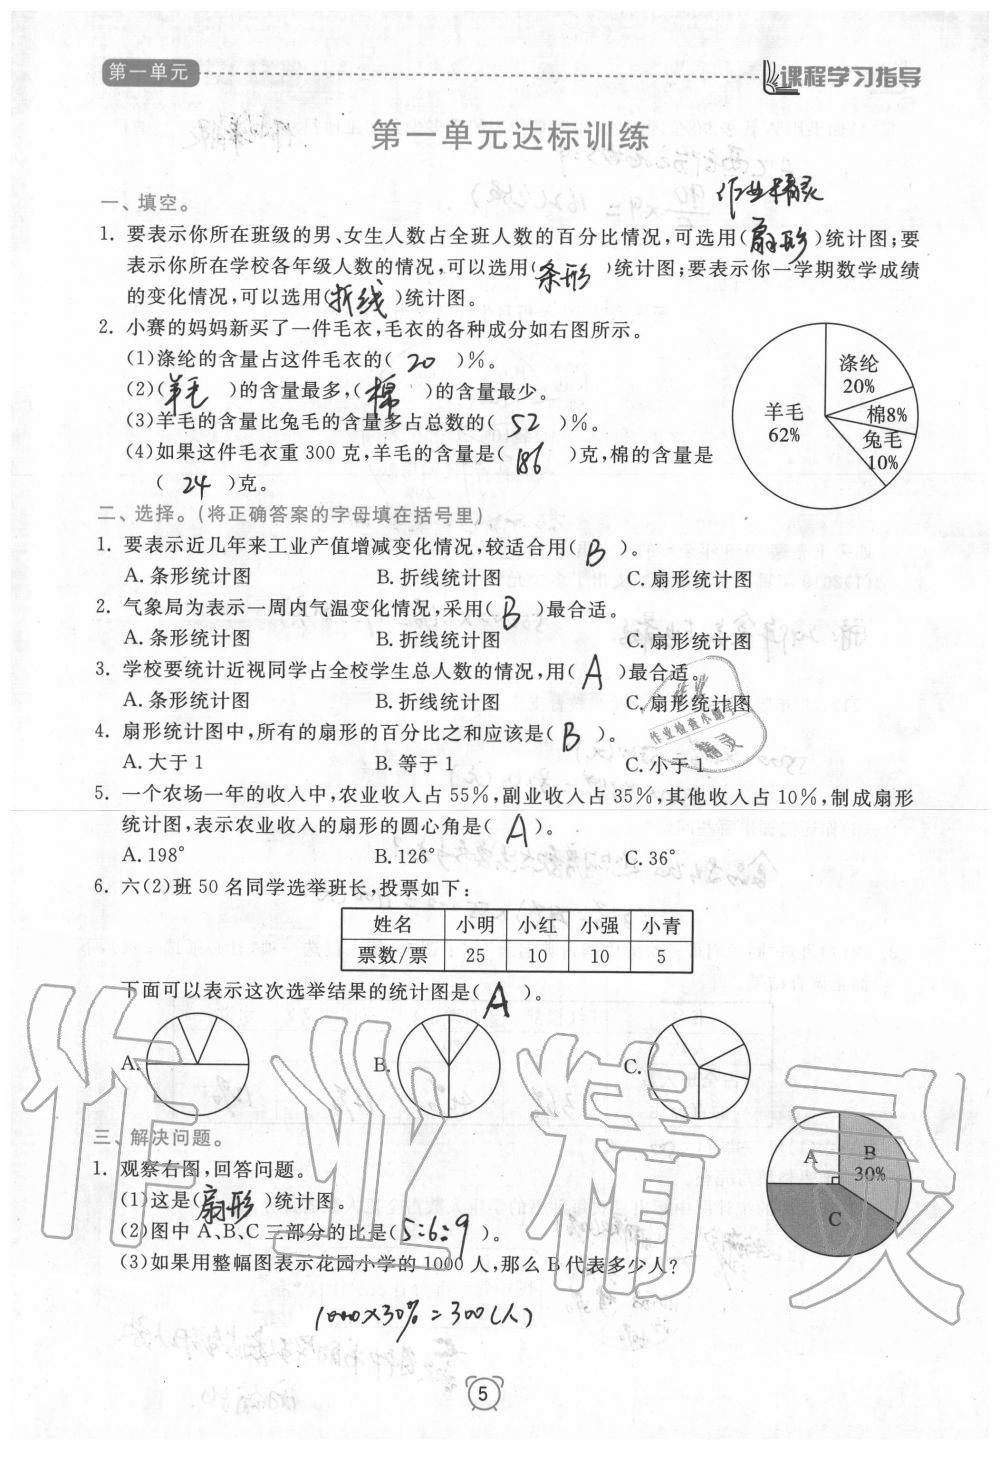 第一单元
课程学习指导
第一单元达标训练
作业精灵
一、填空。
1. 要表示你所在班级的男、女生人数占全班人数的百分比情况,可选用(扇形)统计图;要
表示你所在学校各年级人数的情况,可以选用(条形)统计图;要表示你一学期数学成绩
的变化情况,可以选用(折线)统计图。
2. 小赛的妈妈新买了一件毛衣,毛衣的各种成分如右图所示。
(1)涤纶的含量占这件毛衣的( 20 )%。
(2)(羊毛)的含量最多,(棉)的含量最少。
(3)羊毛的含量比兔毛的含量多占总数的( 52 )%。
(4)如果这件毛衣重 300 克,羊毛的含量是( 186 )克,棉的含量是
( 24 )克。
涤纶
20%
羊毛
62%
棉8%
兔毛
10%
二、选择。(将正确答案的字母填在括号里)
1. 要表示近几年来工业产值增减变化情况,较适合用( B )。
A. 条形统计图 B. 折线统计图 C. 扇形统计图
2. 气象局为表示一周内气温变化情况,采用( B )最合适。
A. 条形统计图 B. 折线统计图 C. 扇形统计图
3. 学校要统计近视同学占全校学生总人数的情况,用( A )最合适。
A. 条形统计图 B. 折线统计图 C. 扇形统计图
作业
作业检查小助手
精灵
4. 扇形统计图中,所有的扇形的百分比之和应该是( B )。
A. 大于 1 B. 等于 1 C. 小于 1
5. 一个农场一年的收入中,农业收入占 55%,副业收入占 35%,其他收入占 10%,制成扇形
统计图,表示农业收入的扇形的圆心角是( A )。
A. 198° B. 126° C. 36°
6. 六(2)班 50 名同学选举班长,投票如下:
姓名 小明 小红 小强 小青
票数/票 25 10 10 5
下面可以表示这次选举结果的统计图是( A )。
A. B. C.
作业精灵
三、解决问题。
1. 观察右图,回答问题。
(1)这是(扇形)统计图。
(2)图中 A、B、C 三部分的比是( 5:6:9 )。
(3)如果用整幅图表示花园小学的 1000 人,那么 B 代表多少人?
A
B
30%
C
1000×30%=300(人)
5